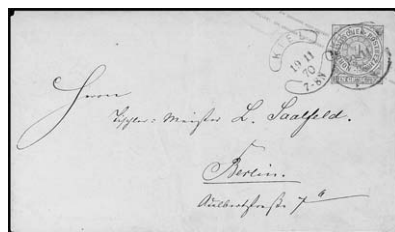 KIEL
19 11
70
7-8N
Herrn
Tischler-Meister L. Saalfeld.
Berlin.
7a